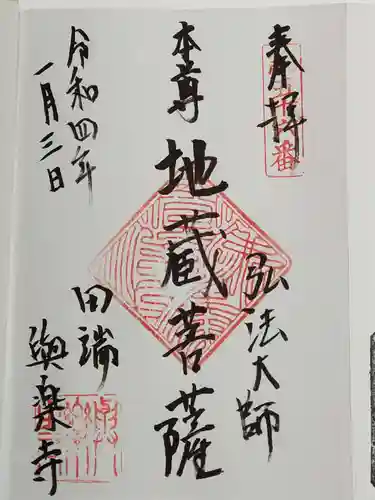 奉拝
弘法大師
本尊
地蔵菩薩
田端
與楽寺
令和四年
一月三日